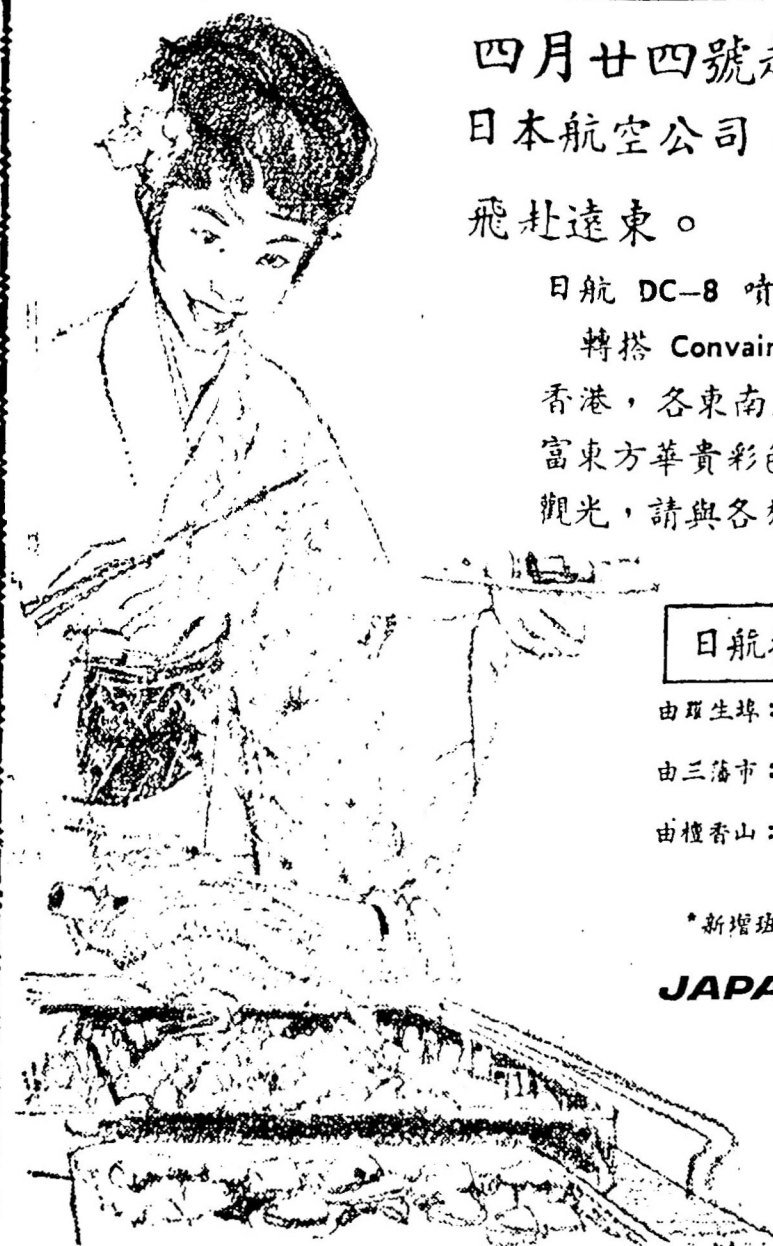 四月廿四號
日本航空公司
飛赴遠東。
日航 DC—8 噴
轉搭 Convair
香港，各東南
富東方華貴彩色
觀光，請與各
日航
由羅生埠：
由三藩市：
由檀香山：
*新增班
JAPA